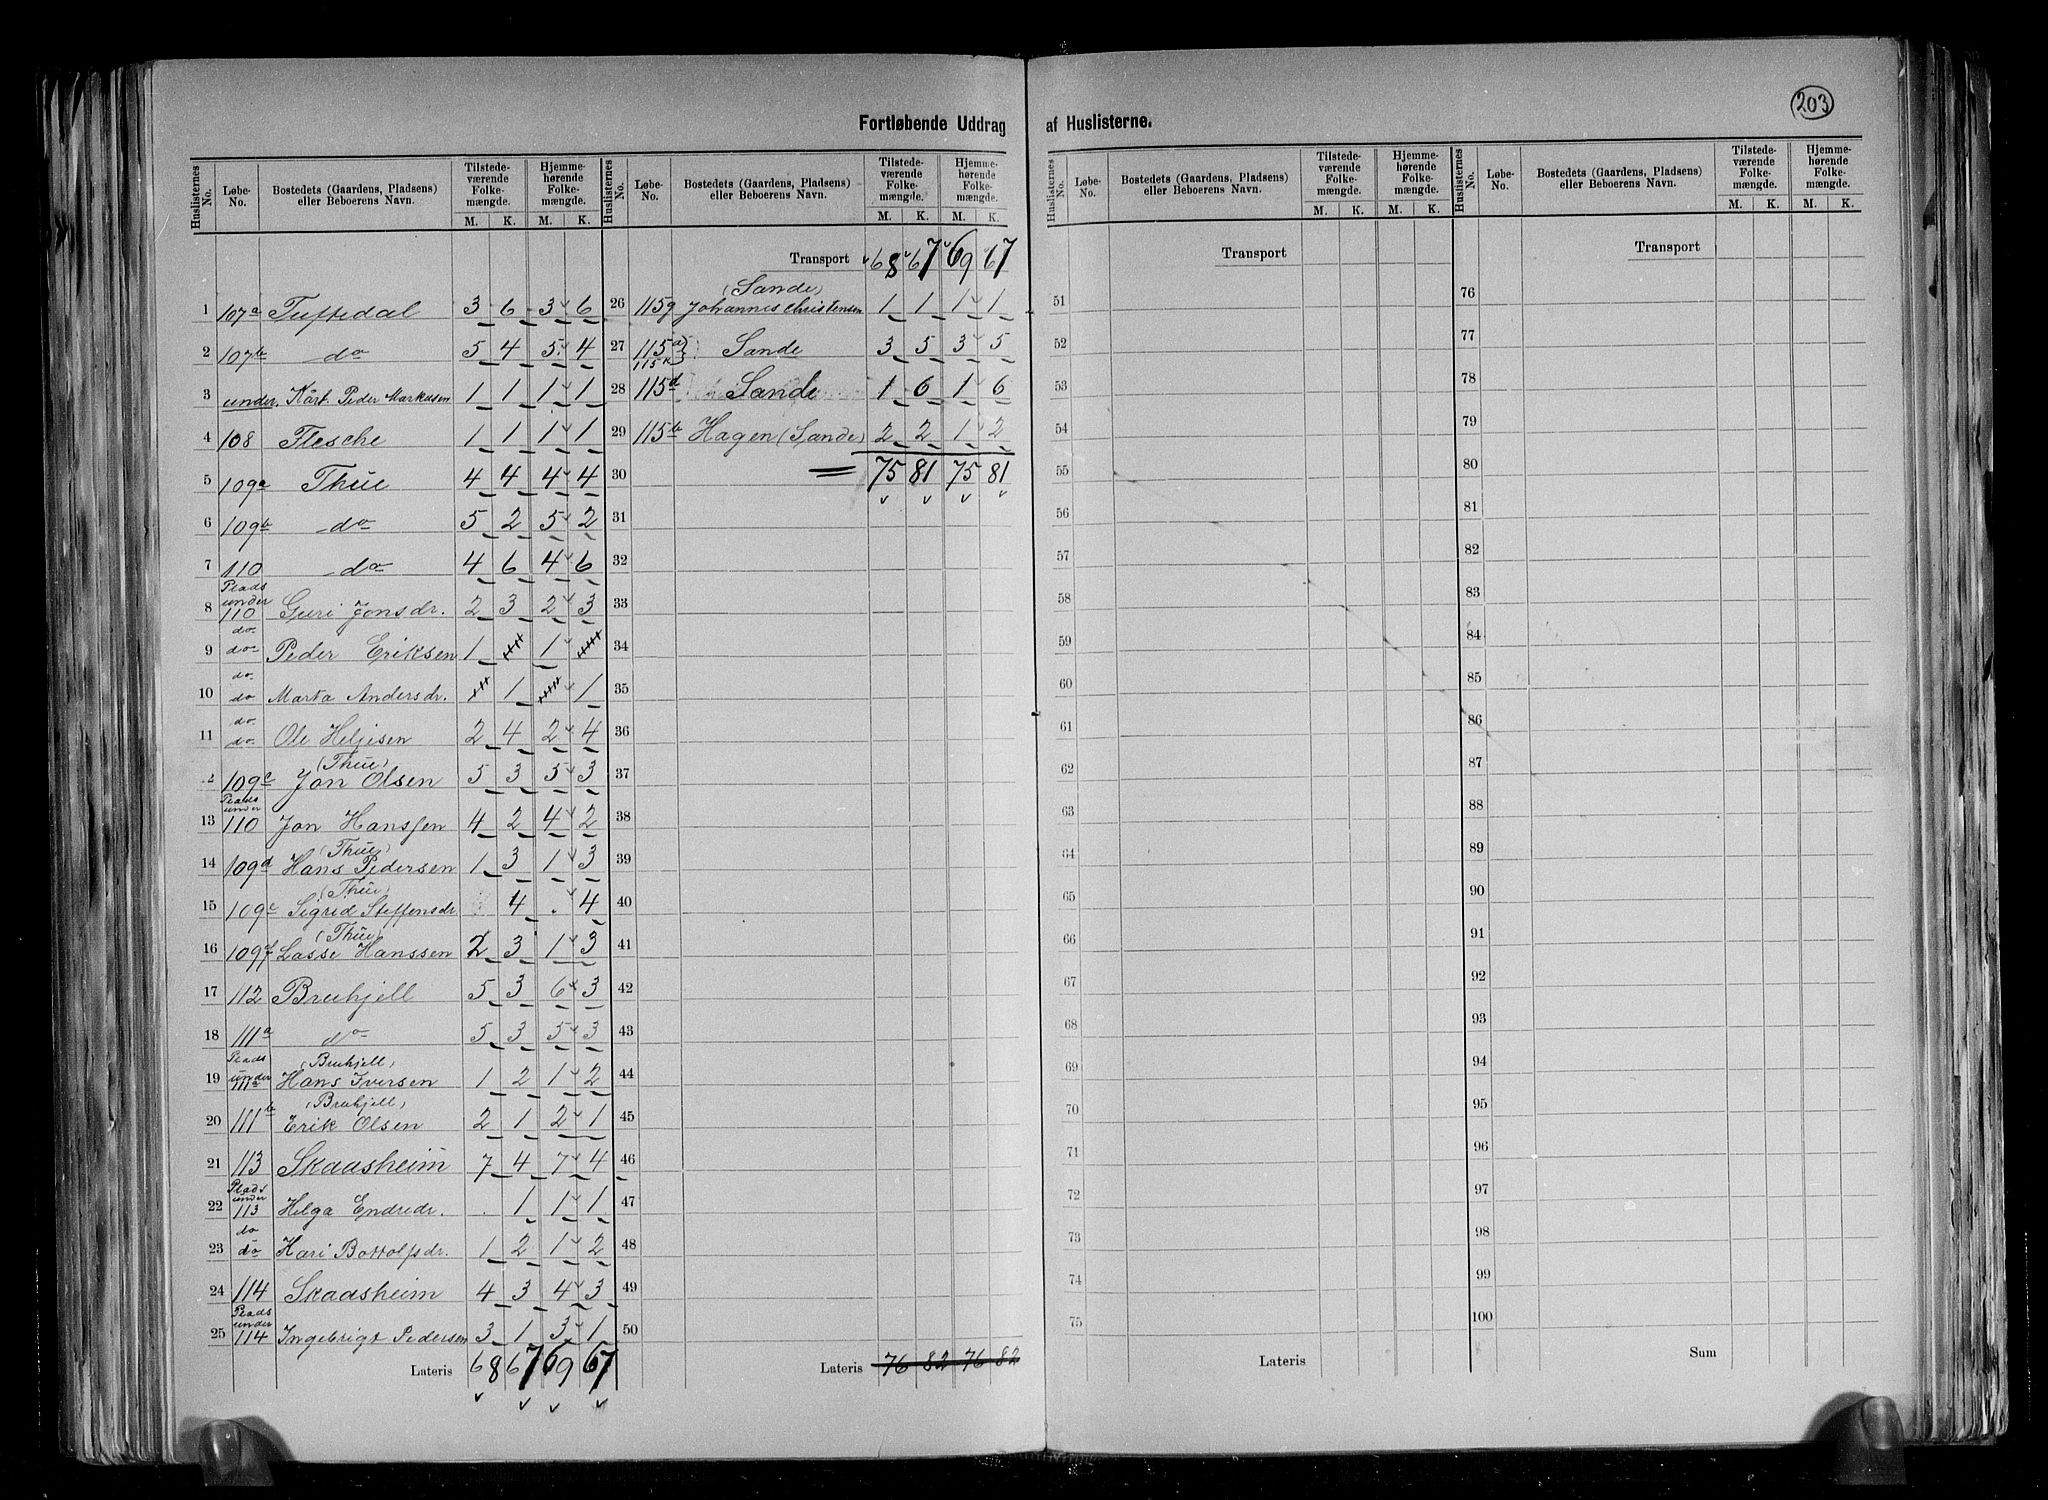 203
Fortløbende Uddrag af Huslisterne.
Huslisternes No. | Løbe-No. | Bostedets (Gaardens, Pladsens) eller Beboerens Navn. | Tilstede-værende Folke-mængde. M. K. | Hjemme-hørende Folke-mængde. M. K.
1 107a Tuftedal 3 6 3 6
2 107b do 5 4 5 4
3 under. Kart. Peder Markusen 1 1 1 1
4 108 Flesche 1 1 1 1
5 109a Thue 4 4 4 4
6 109b do 5 2 5 2
7 110 do 4 6 4 6
8 Plads under 110 Guri Jonsdr. 2 3 2 3
9 do. do Peder Eriksen 1 1
10 do. do Marta Andersdr. 1 1
11 do. do. Ole Helgesen 2 4 2 4
2 109c (Thue) Jon Olsen 5 3 5 3
13 Plads under 110 Jon Hanssen 4 2 4 2
14 109d (Thue) Hans Pedersen 1 3 1 3
15 109e (Thue) Sigrid Steffensdr 4 . 4
16 109f (Thue) Lasse Hanssen 2 3 1 3
17 112 Bruhjell 5 3 6 3
18 111a do 5 3 5 3
19 Plads under 111a (Bruhjell) Hans Iversen 1 2 1 2
20 111b (Bruhjell) Erik Olsen 2 1 2 1
21 113 Skaasheim 7 4 7 4
22 Plads under 113 Helga Endredr. . 1 1 1
23 do do Kari Bottolfsdr. 1 2 1 2
24 114 Skaasheim 4 3 4 3
25 Plads under 114 Ingebrigt Pedersen 3 1 3 1
Lateris 68 67 69 67
Huslisternes No. | Løbe-No. | Bostedets (Gaardens, Pladsens) eller Beboerens Navn. | Tilstede-værende Folke-mængde. M. K. | Hjemme-hørende Folke-mængde. M. K.
Transport 68 67 69 67
26 115g (Sande) Johannes Christensen 1 1 1 1
27 115a 115k Sande 3 5 3 5
28 115d Sande 1 6 1 6
29 115b Hagen (Sande) 2 2 1 2
30 75 81 75 81
31
32
33
34
35
36
37
38
39
40
41
42
43
44
45
46
47
48
49
50
Lateris 76 82 76 82
Huslisternes No. | Løbe-No. | Bostedets (Gaardens, Pladsens) eller Beboerens Navn. | Tilstede-værende Folke-mængde. M. K. | Hjemme-hørende Folke-mængde. M. K.
Transport
51
52
53
54
55
56
57
58
59
60
61
62
63
64
65
66
67
68
69
70
71
72
73
74
75
Lateris
Huslisternes No. | Løbe-No. | Bostedets (Gaardens, Pladsens) eller Beboerens Navn. | Tilstede-værende Folke-mængde. M. K. | Hjemme-hørende Folke-mængde. M. K.
Transport
76
77
78
79
80
81
82
83
84
85
86
87
88
89
90
91
92
93
94
95
96
97
98
99
100
Sum